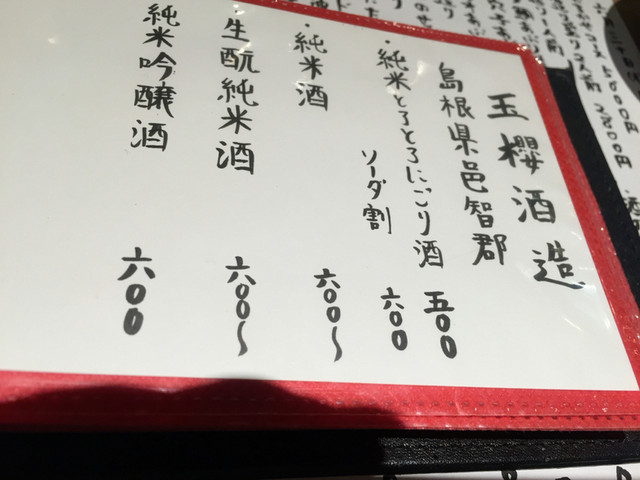 玉櫻酒造
島根県邑智郡
・純米とろとろにごり酒 五〇〇
ソーダ割 六〇〇
・純米酒 六〇〇〜
・生酛純米酒 六〇〇〜
純米吟醸酒 六〇〇
5000円
2800円